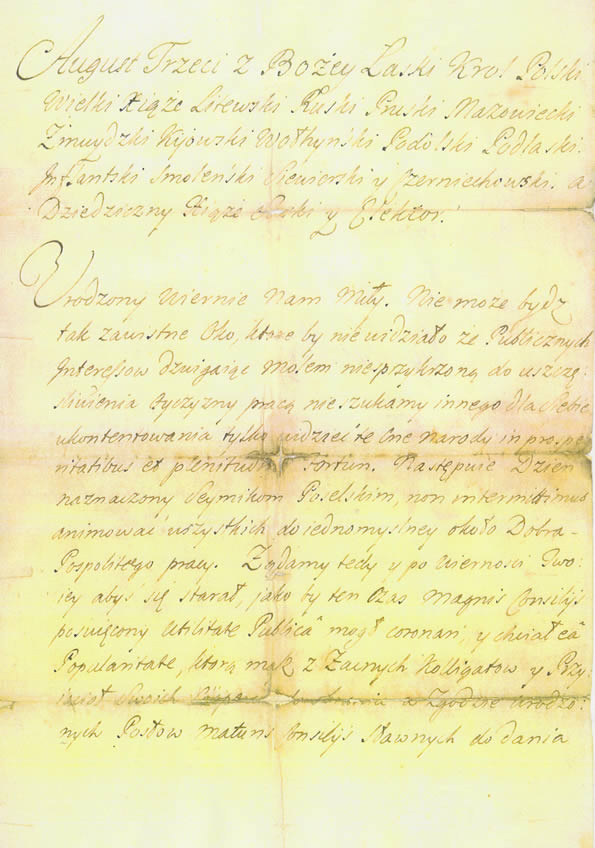 August Trzeci z Bożey Łaski Krol Polski
Wielki Xiąże Litewski Ruski Pruski Mazowiecki
Zmuydzki Kijowski Wołhynski Podolski Podlaski
Inflantski Smoleński Siewierski y Czerniechowski. a
Dziedziczny Xiąże Saski y Elektor.
Urodzony Wiernie Nam Miły. Nie może bydz
tak zawistne Oko, ktore by nie widziało ze Publicznych
Interessow dzwigaiąc molem niesprzykrzoną do uszczę:
sliwienia Oyczyzny pracą nie szukamy innego dla Siebie
ukontentowania tylko widzieć te Cne narody in prospe
ritatibus et plenitudine Fortun. Następuie Dzien
naznaczony Seymikom Poselskim, non intermittimus
animować wszystkich do iednomyslney około Dobra
Pospolitego pracy. Ządamy tedy y po wierności Two:
iey abyś się starał, jako by ten Czas Magnis Consilijs
poswięcony Utilitate Publica mogł coronari, y chciał ea
Popularitate, ktorą masz z Zacnych Kolligatow y Przy
iacioł Swoich w Zgodzie Urodzo:
nych Posłow maturis Consilijs sławnych do dania